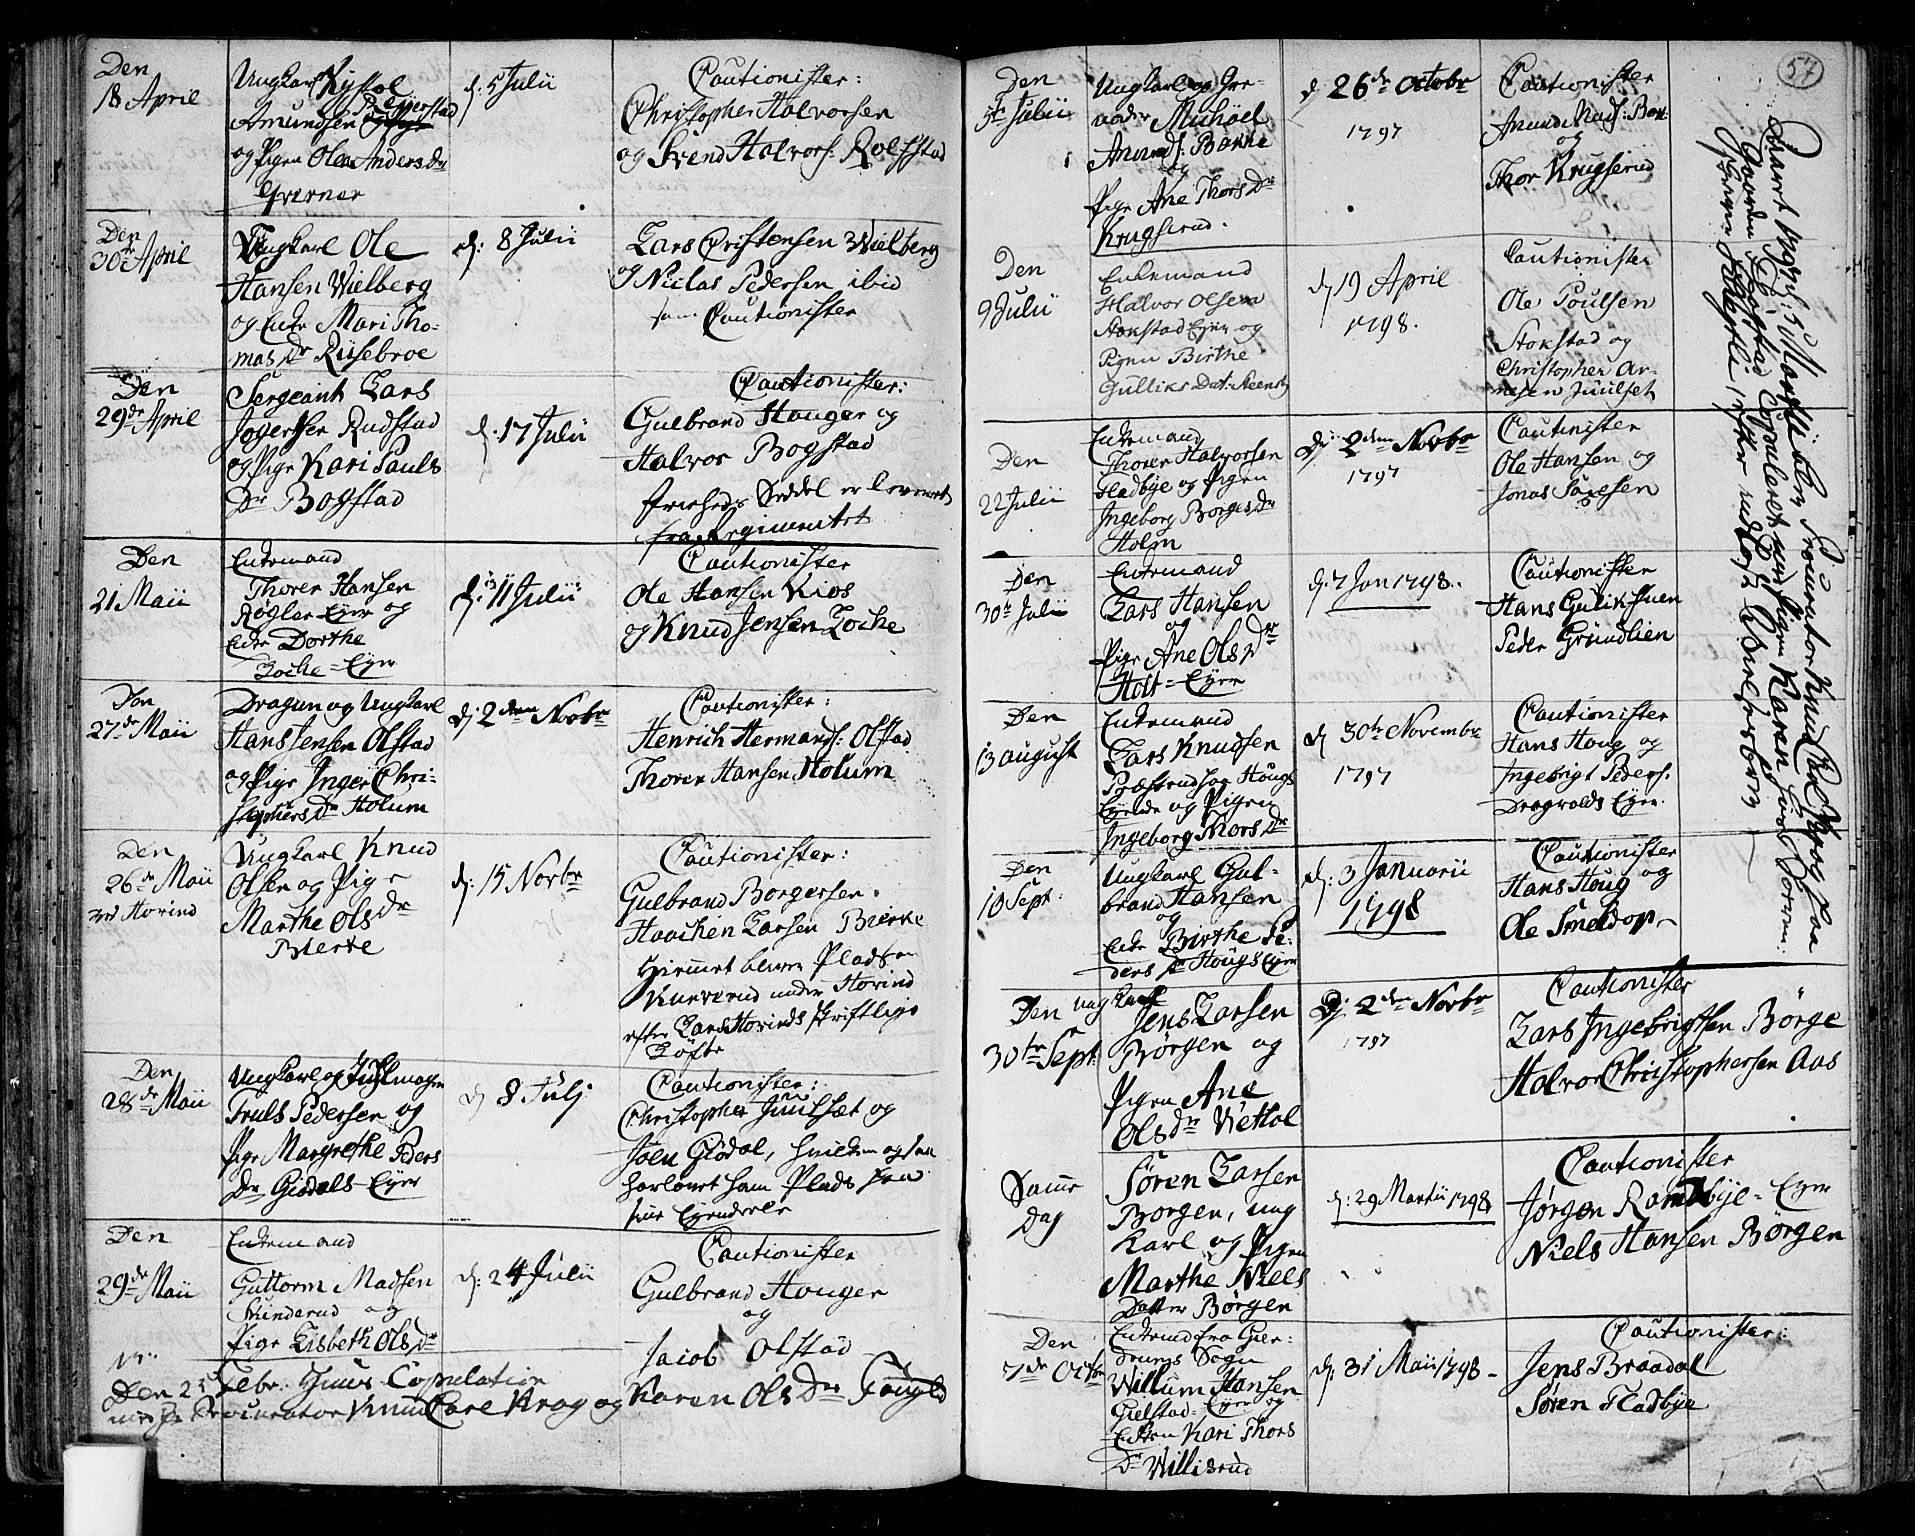 Den
18 April
Ungkarl Kystol
Reiperstad
Amundsen
og Pigen Olea Anders Dr
Qverner
d: 5 Julii
Cautionister:
Christopher Halvorsen
og Svend Halvors: Rolfstad
Den
30de April
Ungkarl Ole
Hansen Wielberg
og Enke Mari Tho-
mas Dr Riisebroe
d: 8 Julii
Lars Cristensen Wielberg
og Niclas Pedersen ibid
som Cautionister
Den
29de April
Sergeant Lars
Rudstad
og Pige Kari Pauls
Dr Bogstad
d: 17 Julii
Cautionister:
Gulbrand Houger og
Halvor Bogstad
Frieheds Seddel er leveret
fra Regimentet
Den
21 Maii
Enkemand
Thorer Hansen
Røgler Eyer og
Enke Dorthe
Loche-Eyer
d: 11 Julii
Cautionister
Ole Hansen Kios
og Knud Jensen Loche
Den
27de Maii
Dragun og Ungkarl
Hans Jensen Olstad
og Pige Inger Chri-
stophers Dr Holum
d: 2den Novbr
Cautionister:
Henrich Hermands: Olstad
Thorer Hansen Holum
Den
26de Maii
ved Hovind
Ungkarl Knud
Olsen og Pige
Marthe Ols Dr
Bierke
d: 15 Novbr
Cautionister:
Gulbrand Borgersen
Haachen Larsen Bierke
Hiemmet bliver Pladsen
Knererud under Hovind
efter Lars Hovinds skriftlige
Løfte
Den
28de Maii
Ungkarl og
Truls Pedersen og
Pige Margrethe Peders
Dr Giødals-Eyer
d 8 Julj
Cautionister:
Christopher Juulsæt og
Joen Giødal, hvilken og saa
har lovet ham Plads paa
sine Eyendeele
Den
29de Maii
Enkemand
Guttorm Madsen
Skinderud og
Pige Lisbeth Ols Dr
d: 24 Julii
Cautionister
Gulbrand Houger
og
Jacob Olstad
Den 25 Febr. Huus-Copulation
med Hr Procurator Knud Carl Krog og Karen Ols Dr Fougles
57
Den
5te Julii
Ungkarl og Gre-
nader Michael
Amunds: Bakke
og
Pige Ane Thors Dr
Krugserud.
d 26de Octobr
1797
Cautionister
Amund Bak:
og
Thor Krugserud
Den
9 Julii
Enkemand
Halvor Olsen
Stokstad Eyer og
Pigen Birthe
Gulliks Dat: Steensr
d 19 April
1798.
Cautionister
Ole Poulsen
Stokstad og
Christopher Ar-
nesen Juulset
Den
22 Julii
Enkemand
Thorer Halvorsen
Fladbye og Pigen
Ingeborg Borges Dr
Holm
D: 2den Novbr
1797
Cautinister
Ole Hansen og
Jonas Saxesen
Den
30te Julii
Enkemand
Lars Hansen
og
Pige Ane Ols Dr
Holt-Eyer
d: 7 Jan 1798.
Cautionister
Hans Gulikstuen
Peder Grundlien
Den
13 august
Enkemand
Lars Knudsen
Houg
Eyede og Pigen
Ingeborg Thors Dr
d 30te Novembr
1797
Cautionister
Hans Houg og
Ingebrigt Peders:
Dragvolds Eyer.
Den
10 Sept:
Ungkarl Gul-
brand Hansen
og
Enke Birthe Pe-
ders Dr Hougs Eyer
d: 3 Januarii
1798
Cautionister
Hans Houg og
Ole
Den
30te Sept:
ungkarl
Jens Larsen
Børgen og
Pigen Ane
Ols Dr Wettal
D: 2den Novbr
1797
Cautionister
Lars Ingebrigtsen Börge
Halvor Christophersen Aas
Samme
Dag
Søren Larsen
Børgen, ung
Karl og Pigen
Marthe Niels
Datter Børgen
d: 29 Martii 1798
Cautionister
Jørgen Ramstbye-Eyer
Niels Hansen Børgen
Den
7de Octbr
Enkemd fra Gier-
drums Sogn
Willum Hansen
Gielstad-Eyer og
Enken Kari Thors
Dr Willisrud
d: 31 Maii 1798-
Cautionister:
Jens Braadal
Søren Fladbye
Procurator Knud Carl Krog paa
Gaarden Copuleret med Pigen Karen